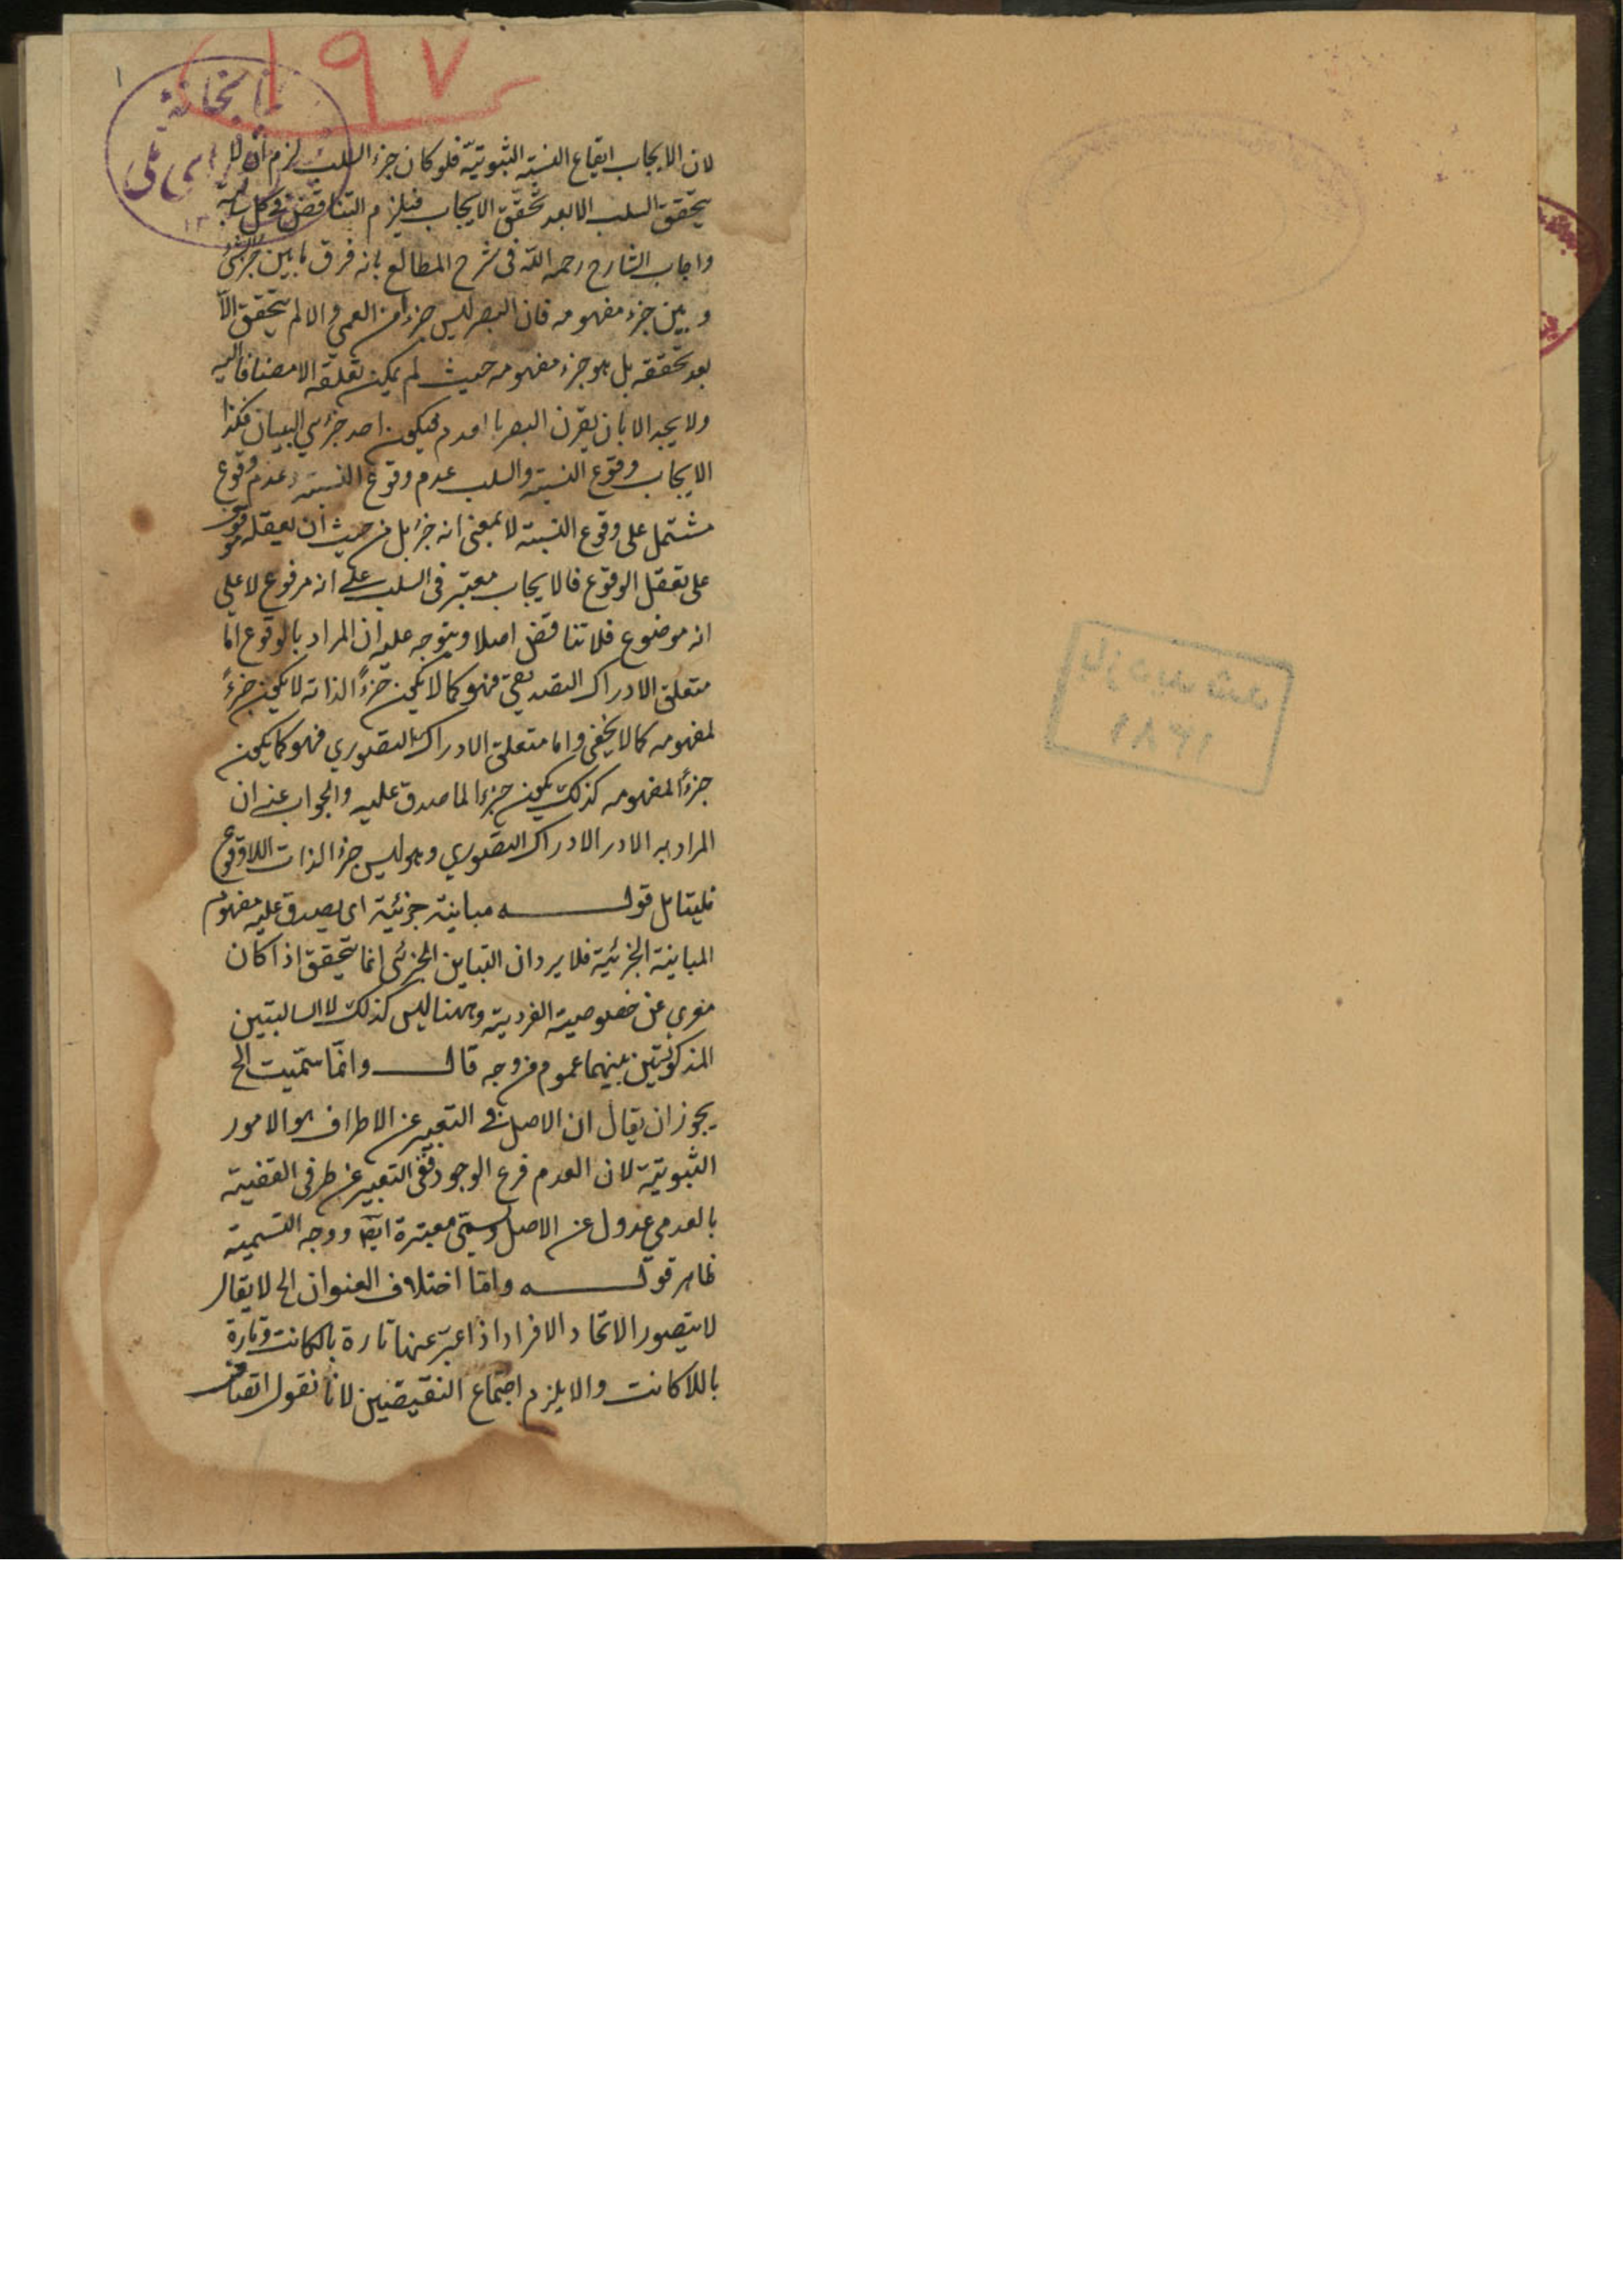 ۱۹۷
۱
لان الايجاب ايقاع النسبة الثبوتيّة فلو كان جزء السلب لزم ان لا
يتحقق السلب الا بعد تحقق الايجاب فيلزم التناقض فى كل سالبة
واجاب الشارح رحمه اللّه فى شرح المطالع بانه فرق ما بين جزء الشئ
و بين جزء مفهومه فان البصر ليس جزءا من العمى و الا لم يتحقق الّا
بعد تحققه بل هو جزء مفهومه حيث لم يمكن تعلقه الا مضافا اليه
ولا يجد الا بان يقرن البصر بالعدم فيكون احد جزئي البيان فكذا
الايجاب وقوع النسبة والسلب عدم وقوع النسبة وعدم وقوع
مشتمل على وقوع النسبة لا بمعنى انه جزء بل من حيث ان تعقله موقوف
على تعقل الوقوع فالايجاب معتبر فى السلب على انه مرفوع لا على
انه موضوع فلا تناقض اصلا ويتوجه عليه ان المراد بالوقوع امّا
متعلق الادراك التصديقى فهو كما لا يكون جزءً الذاته لا يكون جزءً
لمفهومه كما لا يخفى واما متعلق الادراك التصوري فهو كما يكون
جزءً لمفهومه كذلك يكون جزءا لما صدق عليه والجواب عنه ان
المراد به الادر الادراك التصوري وهو ليس جزء الذات اللاوقوع
فليتامل قوله مباينة جزئية اى يصدق عليه مفهوم
المباينة الجزئية فلا يرد ان التباين الجزئى انما يتحقق اذا كان
معرى عن خصوصية الفردية وههنا ليس كذلك لا السالبتين
المذكورتين بينهما عموم من وجه قال وانّما سمّيت الخ
يجوز ان يقال ان الاصل فى التعبير عن الاطراف هو الامور
الثبوتية لان العدم فرع الوجود ففى التعبير عن طرفى القضية
بالعدمى عدول عن الاصل وسمى معتبرة ايضا ووجه التسمية
ظاهر قوله وامّا اختلاف العنوان الخ لا يقال
لا يتصور الاتحاد الافراد اذا عبّر عنها تارة بالكاتب وتارة
باللاكاتب والا يلزم اجتماع النقيضين لانا نقول اتصاف
بازدید شد